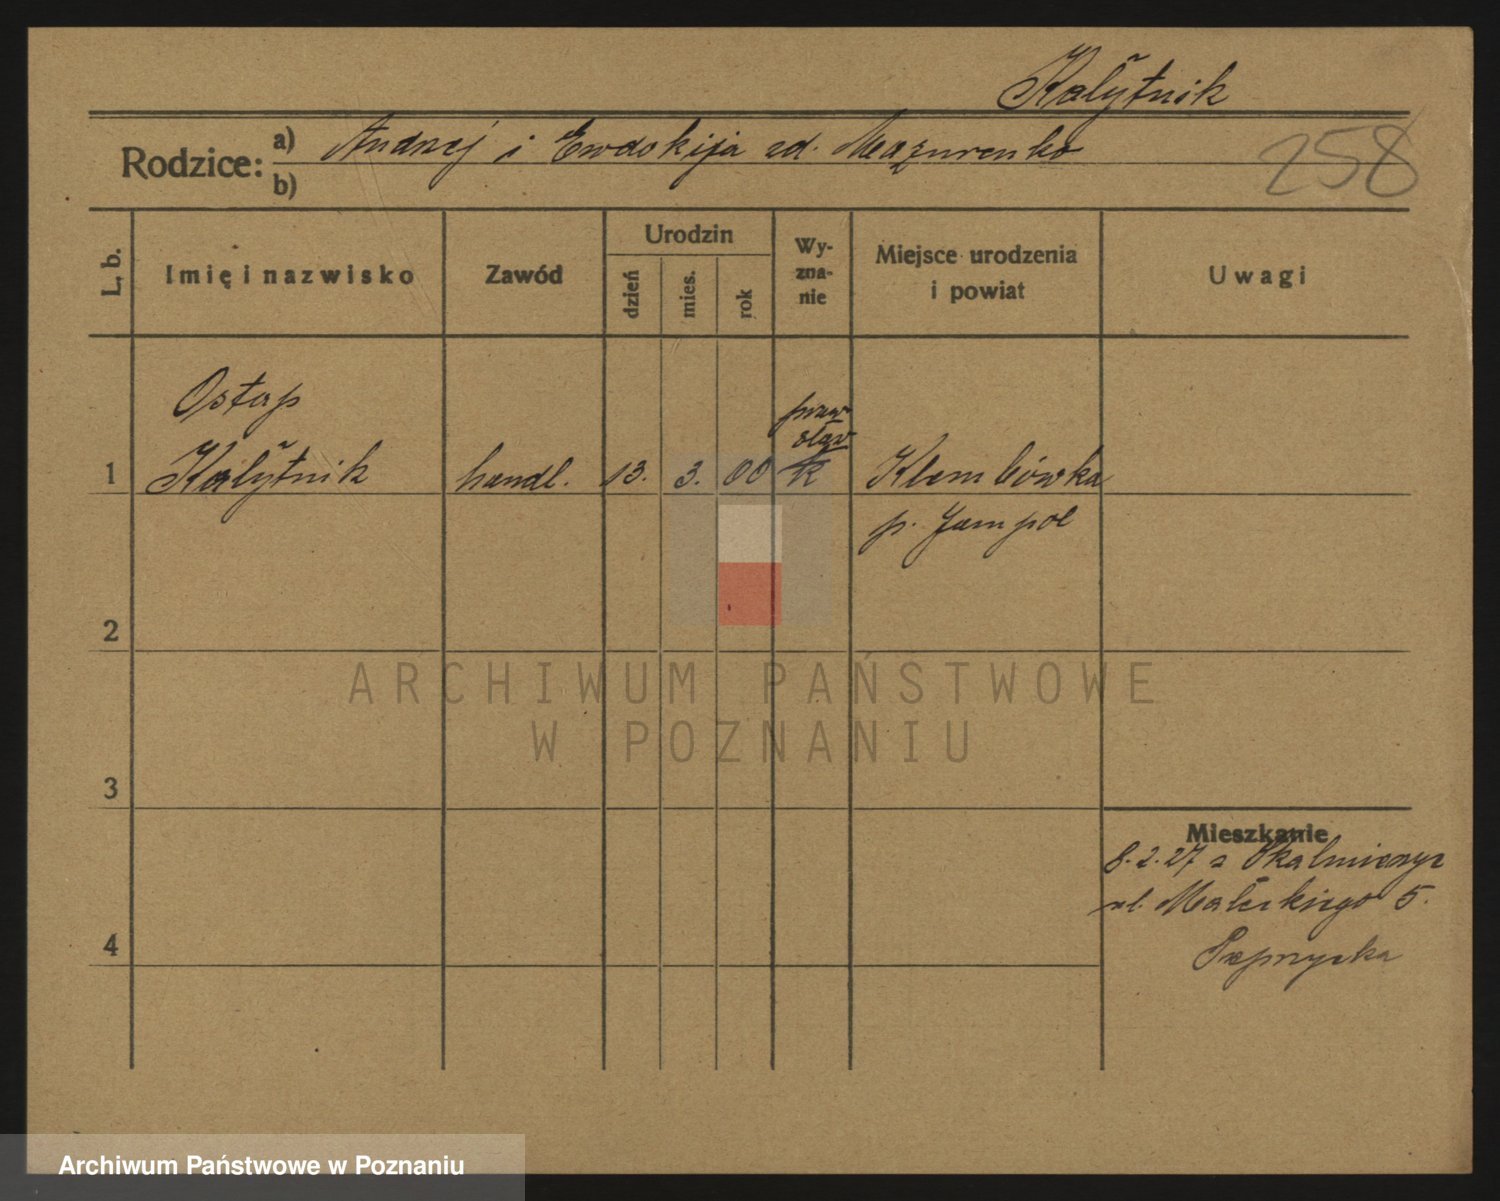 Kalytnik
Rodzice: a) Andrzej i Ewdokija zd. Mazurenko
b)
258
L. b.
Imię i nazwisko
Zawód
Urodzin
dzień
mies.
rok
Wy-
zna-
nie
Miejsce urodzenia
i powiat
Uwagi
Ostap
praw
sław
1 Kalytnik handl. 13. 3. 00 k Klembówka
p. Jampol
2
3
4
Mieszkanie
8.2.27 z Skalmierzyc
ul. Małeckiego 5.
ARCHIWUM PAŃSTWOWE
W POZNANIU
Archiwum Państwowe w Poznaniu